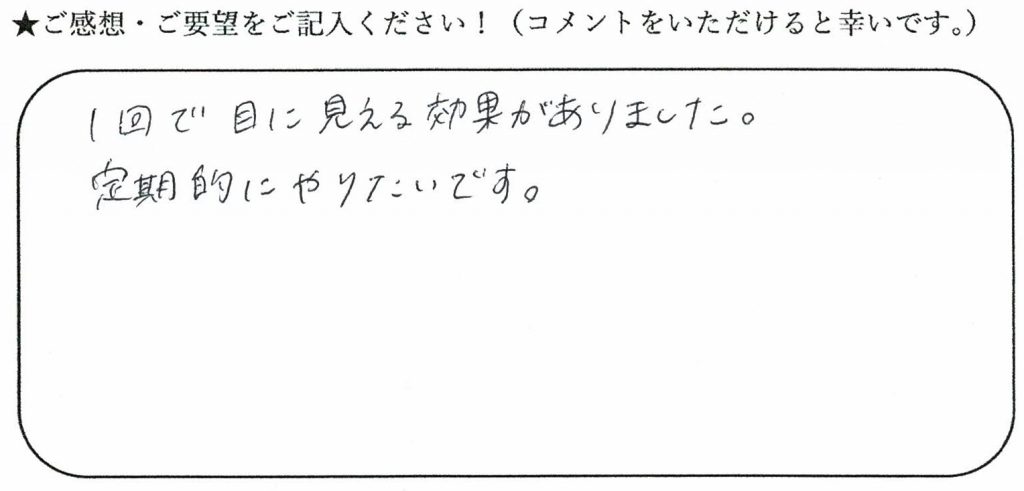 ★ご感想・ご要望をご記入ください！（コメントをいただけると幸いです。）
1回で目に見える効果がありました。
定期的にやりたいです。